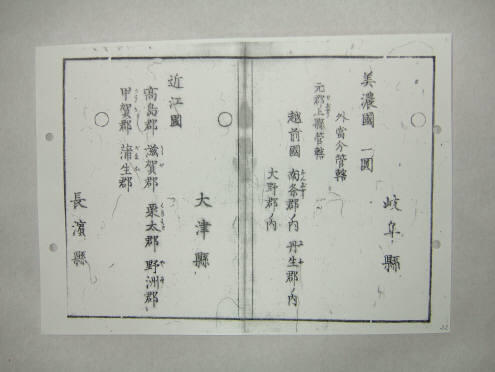 岐阜縣
美濃國 一圓
外當分管轄
元郡上縣管轄
越前國 南条郡ノ内 丹生郡ノ内
大野郡ノ内
○
大津縣
近江國
高島郡 滋賀郡 栗太郡 野洲郡
甲賀郡 蒲生郡
○
長濱縣